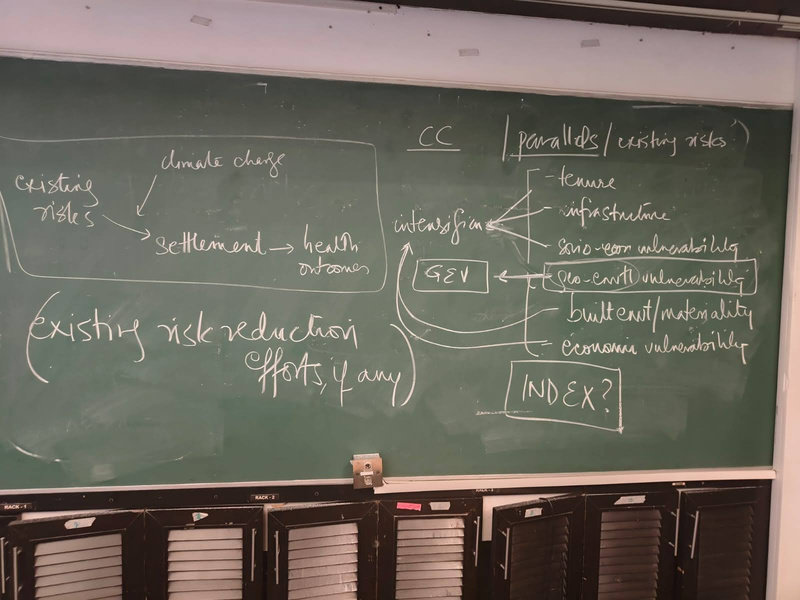 climate change
existing
risks
settlement → health
outcomes
(existing risk reduction
efforts, if any)
CC
/parallels/existing risks
- tenure
- infrastructure
intensifier
socio-econ vulnerability
GEV
geo-envtl vulnerability
built envt/materiality
economic vulnerability
INDEX?
RACK - 1
RACK - 2